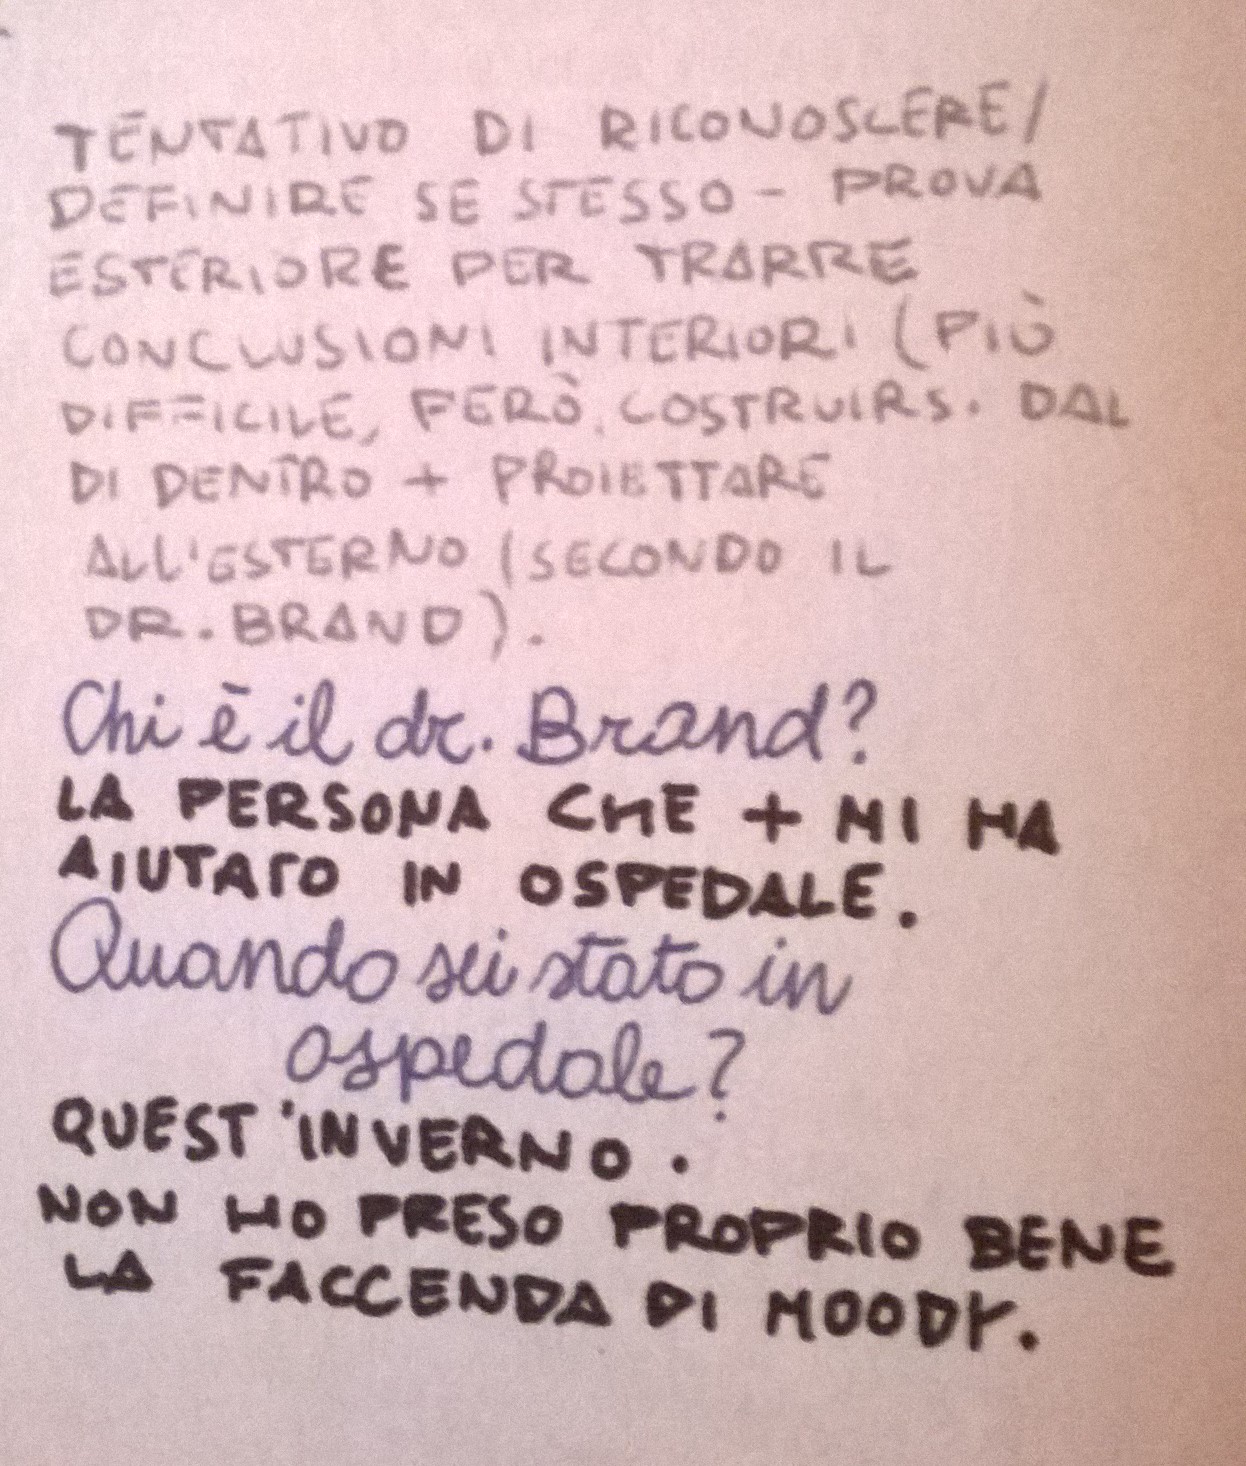 TENTATIVO DI RICONOSCERE/
DEFINIRE SE STESSO - PROVA
ESTERIORE PER TRARRE
CONCLUSIONI INTERIORI (PIÙ
DIFFICILE, PERÒ, COSTRUIRSI DAL
DI DENTRO + PROIETTARE
ALL'ESTERNO (SECONDO IL
DR. BRAND).
Chi è il dr. Brand?
LA PERSONA CHE + MI HA
AIUTATO IN OSPEDALE.
Quando sei stato in
ospedale?
QUEST'INVERNO.
NON HO PRESO PROPRIO BENE
LA FACCENDA DI MOODY.